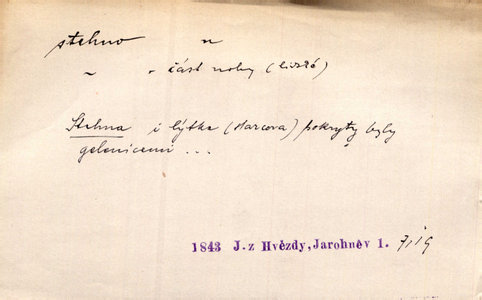 stehno n
~ část nohy (lidské)
Stehna i lýtka (starcova) pokryty byly
gelenicemi ...
1843 J.z Hvězdy, Jarohněv 1.